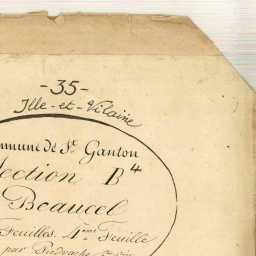 -35-
Ille-et-Vilaine
mmune de St. Ganton
ection B4
Beaucel
Feuilles. 4ème Feuille
par